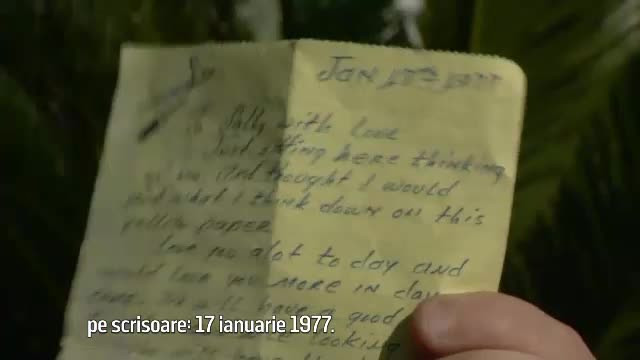 Jan 17th 1977
To Sally with love
Just sitting here thinking
and thought I would
put what I think down on this
yellow paper
love you alot to day and
would love you more in day
have a good
looking
pe scrisoare: 17 ianuarie 1977.